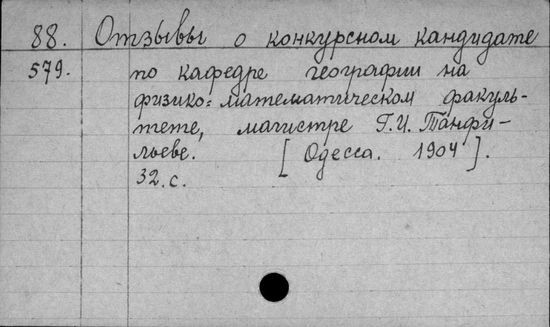 88. Отзывы о конкурсном кандидате
579. по кафедре географии на
физико=математическом факуль-
тете, магистре Г.И. Танфи-
льеве. [Одесса. 1904].
32.с.